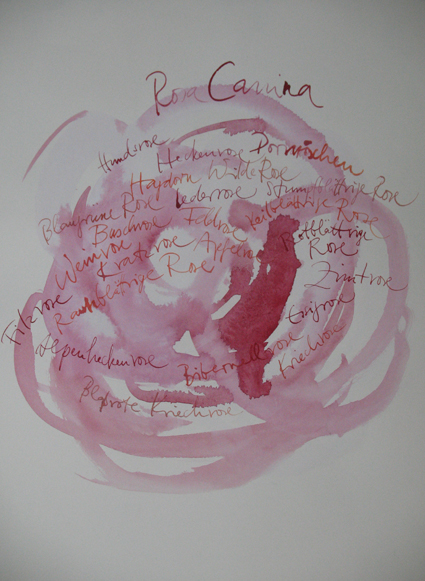 Rosa Canina
Hundsrose
Heckenrose Dornröschen
Hagdorn Wilde Rose
Blaugrüne Rose Lederrose Stumpfblättrige Rose
Buschrose Filzrose Keilblättrige Rose
Weinrose Kratzrose Apfelrose Rotblättrige
Rose
Rauhblättrige Rose
Zimtrose
Filzrose
Essigrose
Alpenheckenrose
Bibernellrose
Kriechrose
Blaßrote Kriechrose